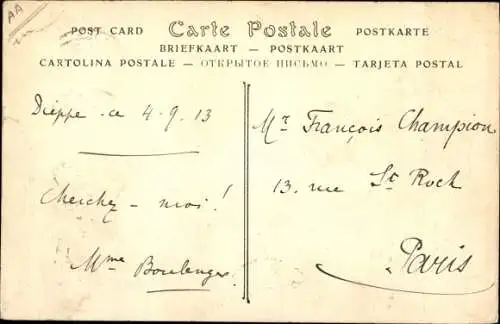 AA
POST CARD Carte Postale POSTKARTE
BRIEFKAART — POSTKAART
CARTOLINA POSTALE — ОТКРЫТОЕ ПИСЬМО — TARJETA POSTAL
Dieppe - ce 4-9-13
Cherchez - moi !
Mme Boulenger
Mr François Champion
13. rue St Roch
Paris